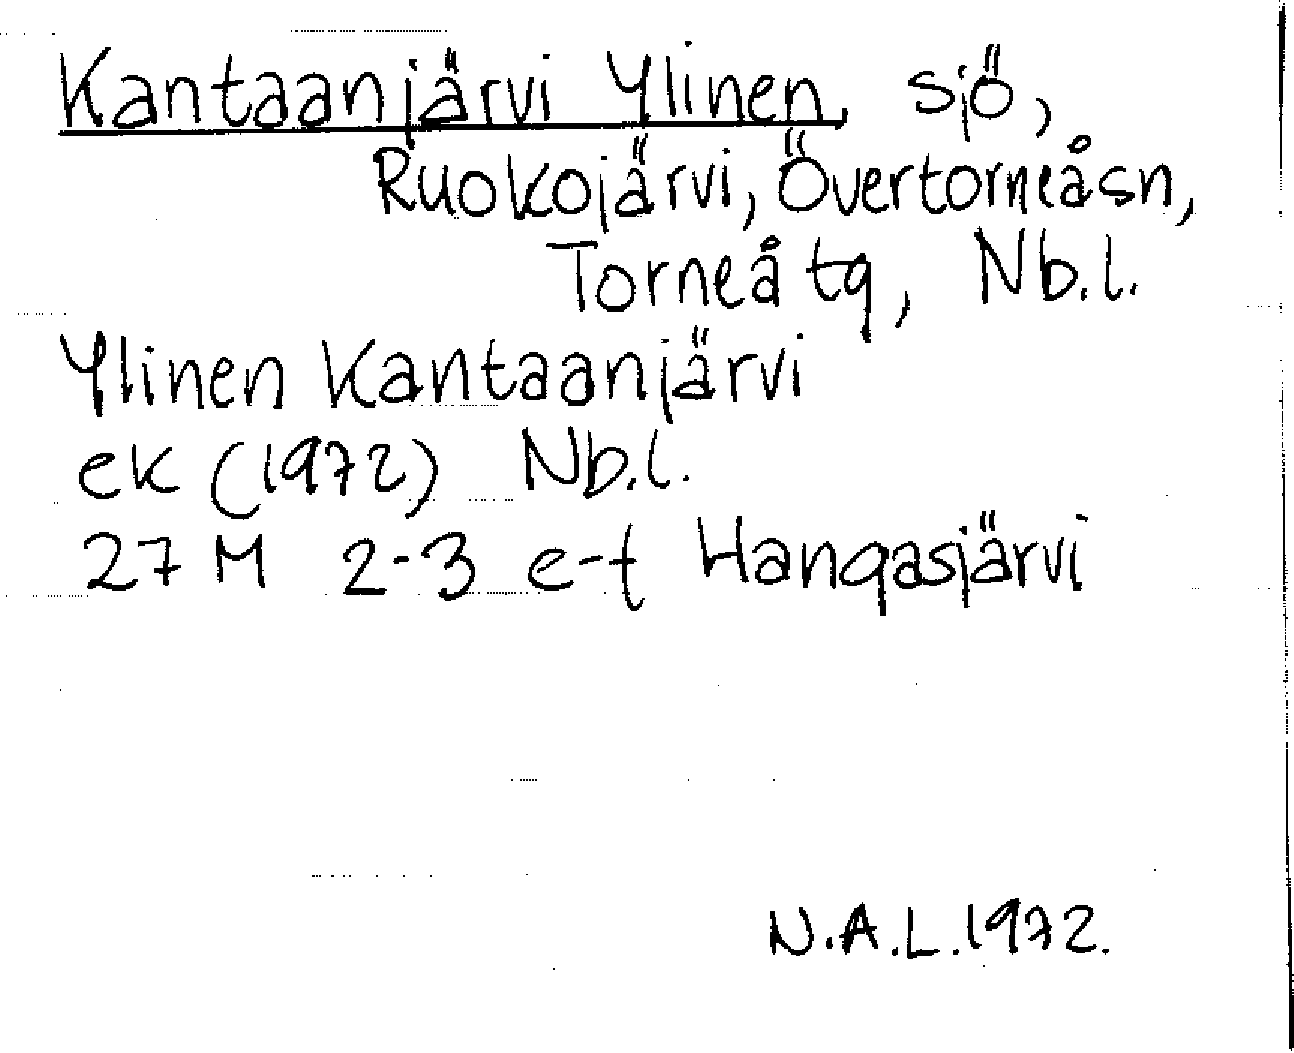 Kantaanjärvi Ylinen, sjö,
Ruokojärvi, Övertorneåsn,
Torneå tg, Nb.l.
Ylinen Kantaanjärvi
ek (1972) Nb.l.
27 M 2-3 e-f Hangasjärvi
N.A.L.1972.